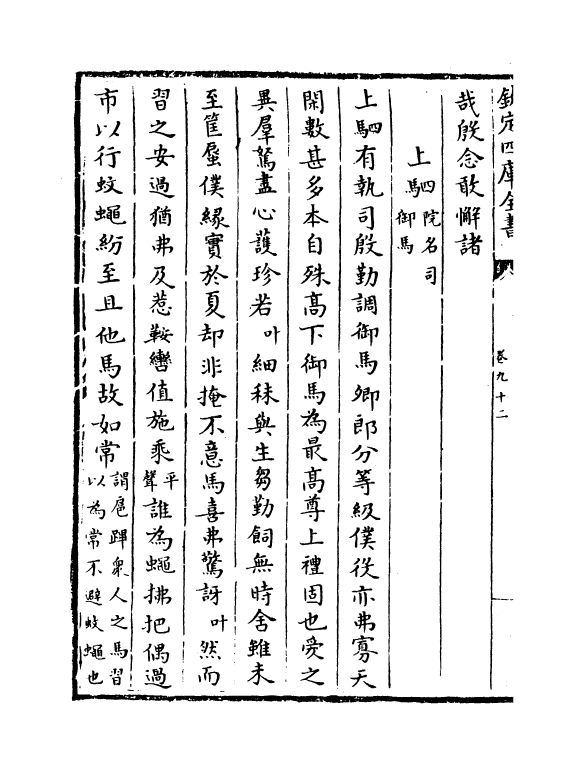 欽定四庫全書
卷九十二
哉殷念敢懈諸
上駟院名司御馬
上駟有執司殷勤調御馬卿郎分等級僕役亦弗寡天
閑數甚多本自殊高下御馬為最高尊上禮固也愛之
異羣駑盡心護珍若叶細秣與生芻勤飼無時舍雖未
至筐蜃僕緣實於夏却非掩不意馬喜弗驚訝叶然而
習之安過猶弗及惹鞍轡值施乘平聲誰為蠅拂把偶過
市以行蚊蠅紛至且他馬故如常謂扈蹕衆人之馬習以為常不避蚊蠅也